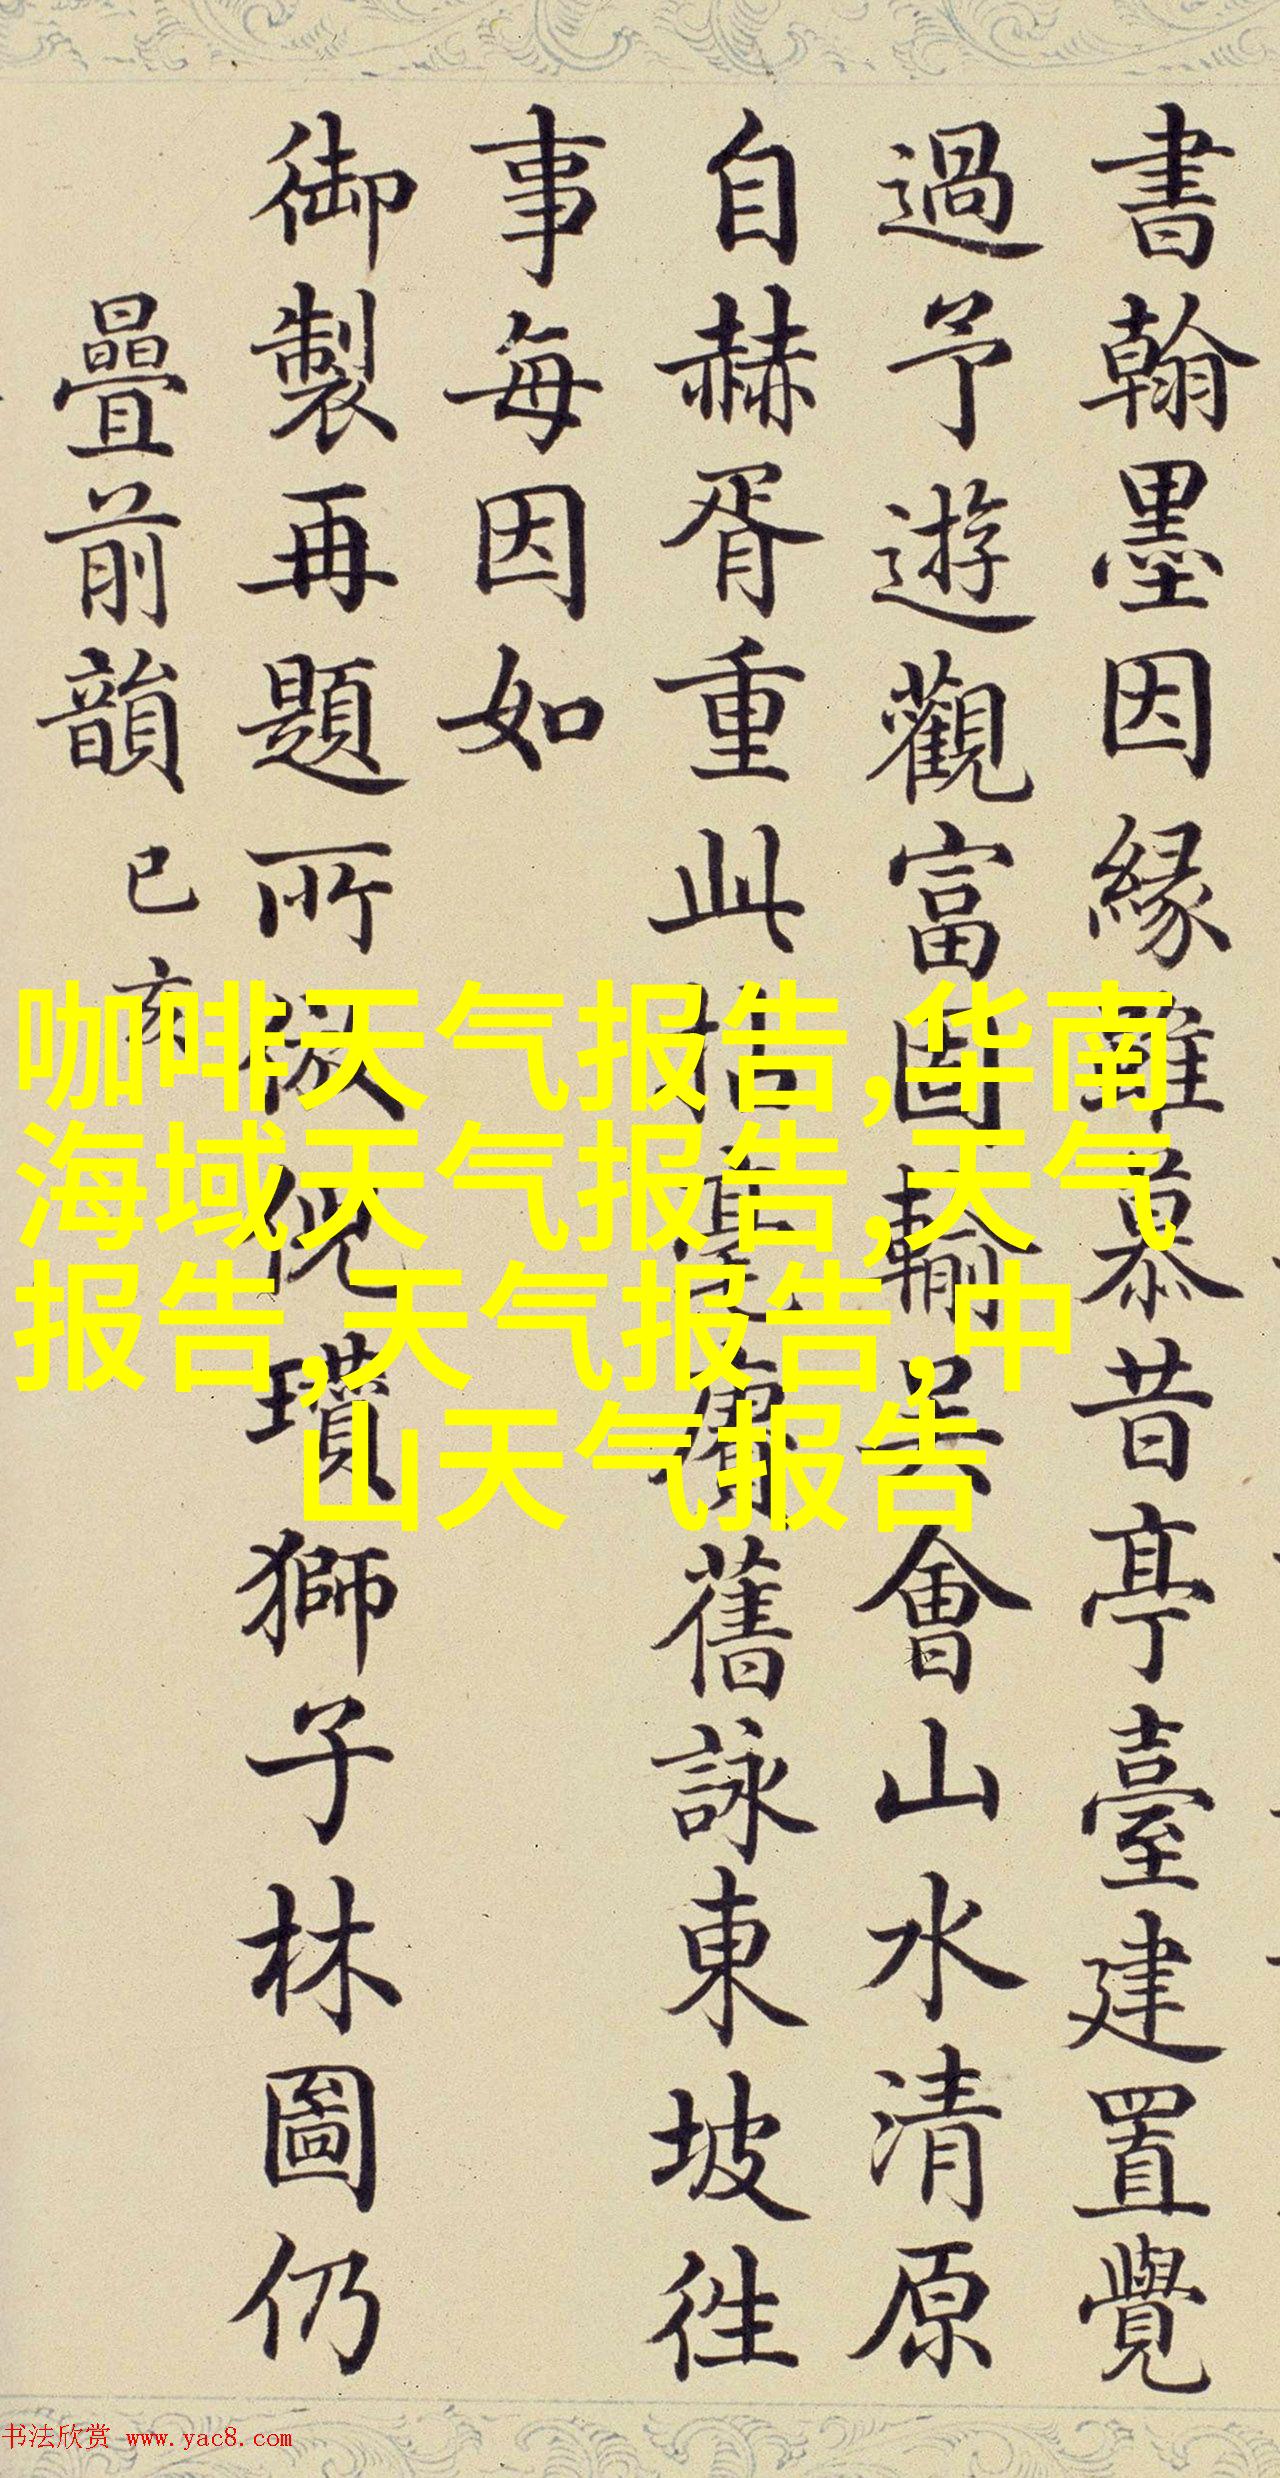 書翰墨因緣雖慕昔亭臺建置覺
過予遊觀富固輸吳會山水清原
自赫胥重此摹舊詠東坡徃
事每因如
御製再題所倣倪瓚獅子林圖仍
疊前韻己亥
咖啡天气报告,华南
海域天气报告,天气
报告,天气报告,中
山天气报告
书法欣赏 www.yac8.com